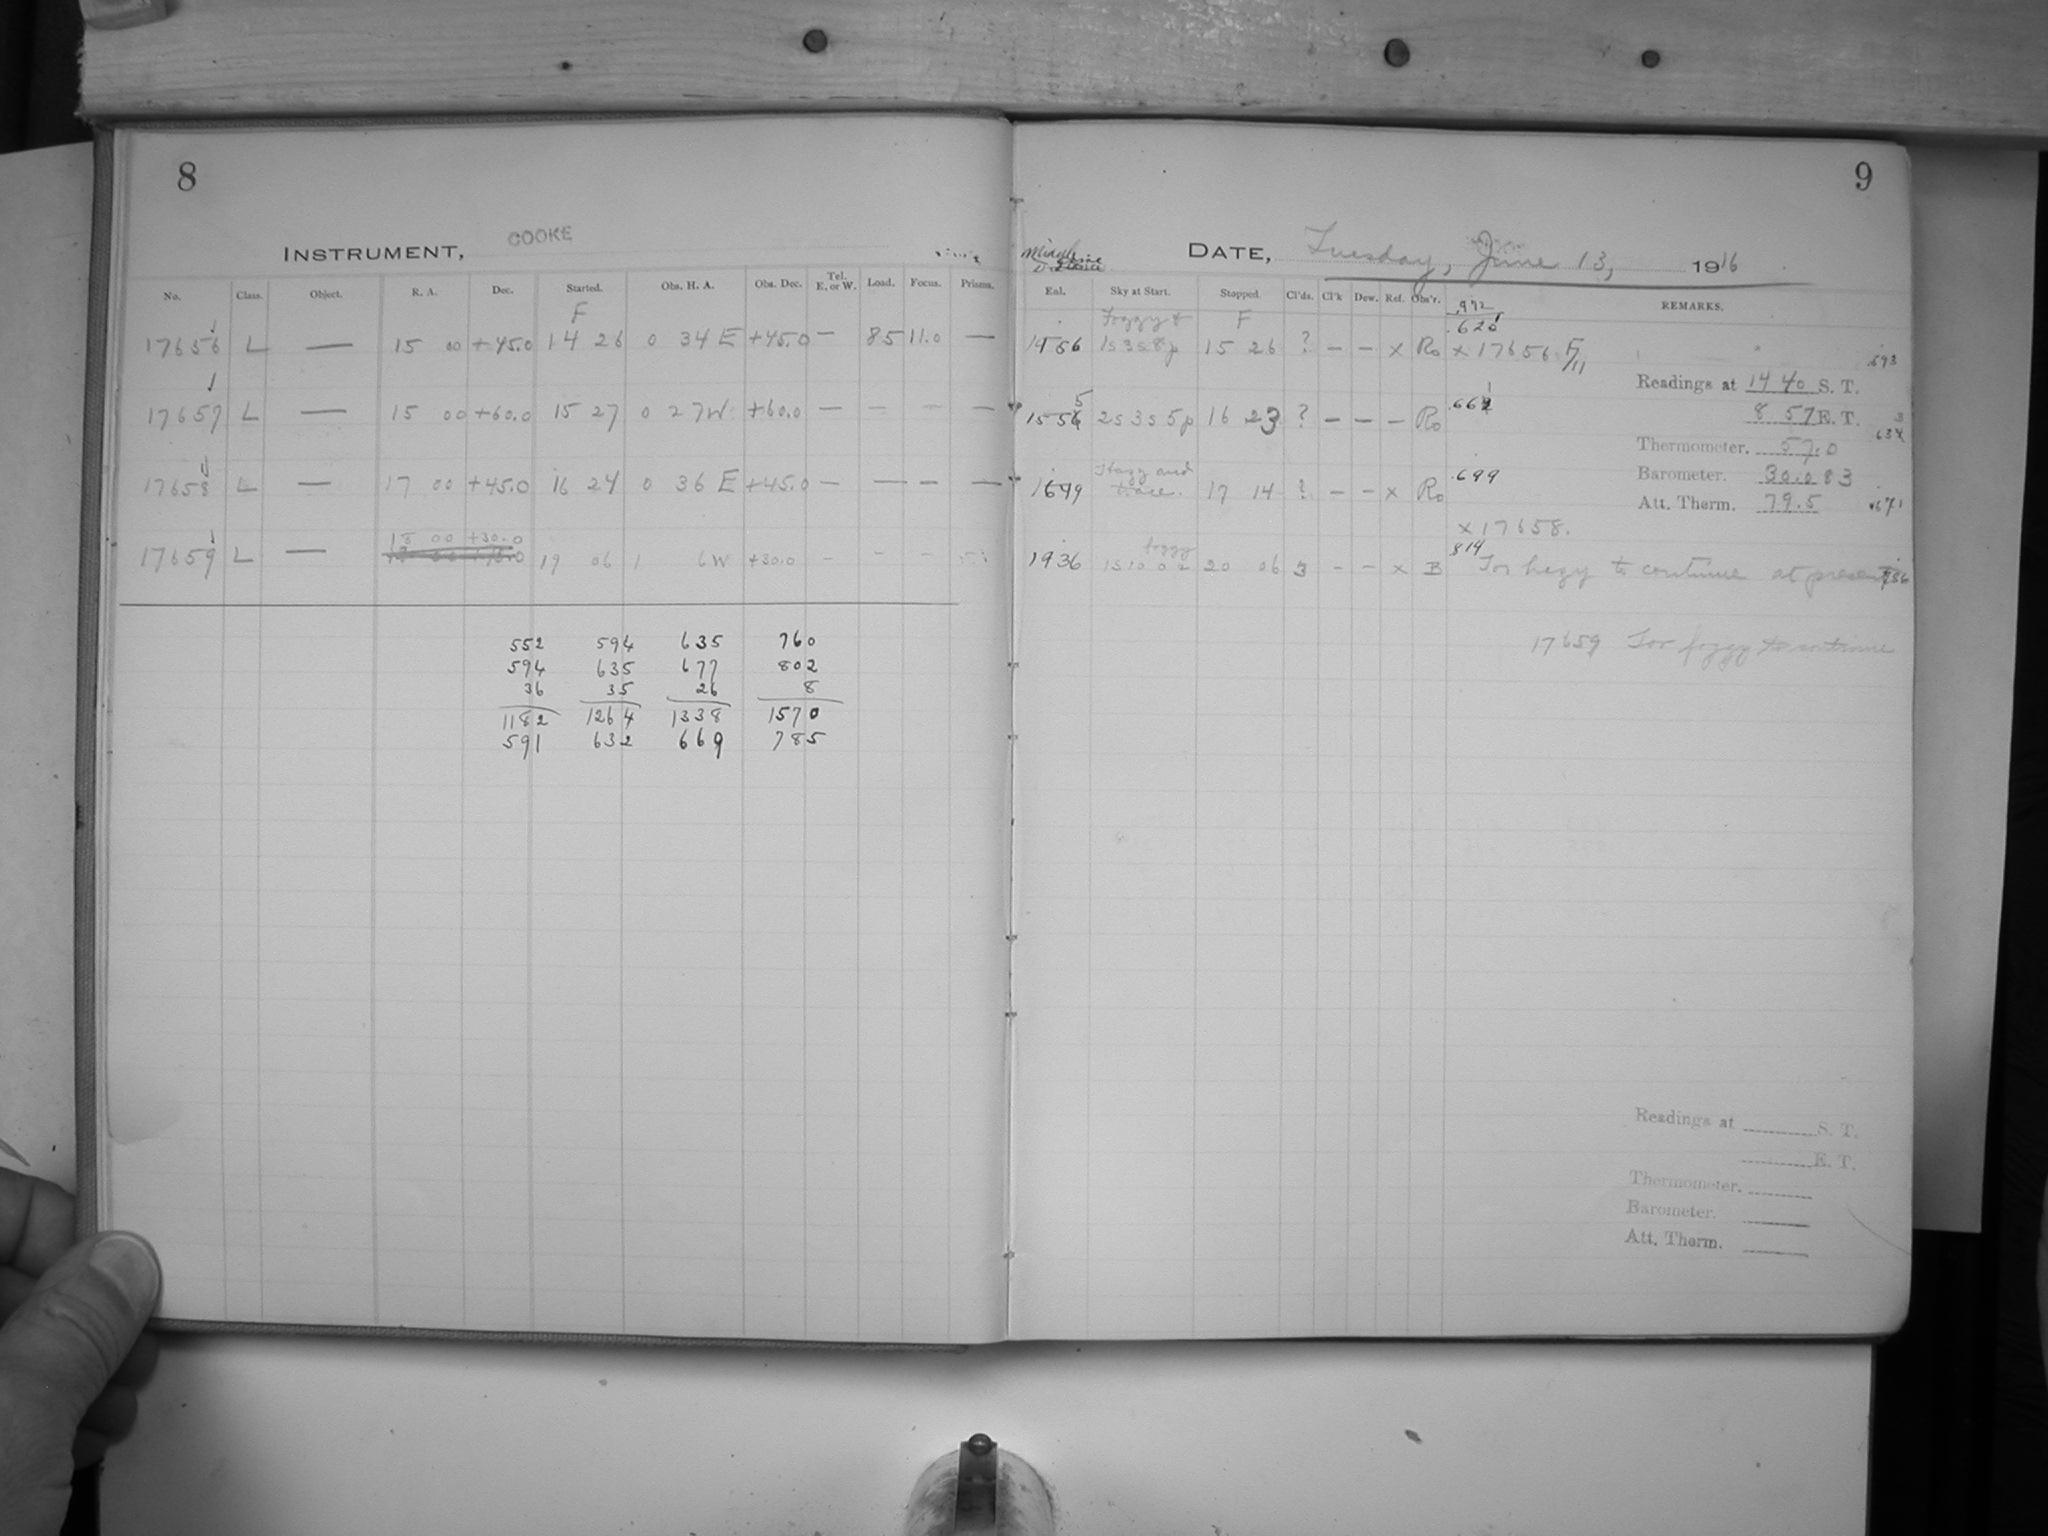 8
INSTRUMENT, COOKE
No. Class. Object. R. A. Dec. Started. Obs. H. A. Obs. Dec. Tel. E. or W. Load. Focus. Prisms.
F
17656 L — 15 00 +45.0 14 26 0 34 E +45.0 — 85 11.0 —
17657 L — 15 00 +60.0 15 27 0 27 W +60.0 — — — —
17658 L — 17 00 +45.0 16 24 0 36 E +45.0 — — — —
18 00 +30.0
17659 L — 19 06 1 6 W +30.0 — - -
552 594 635 760
594 635 677 802
36 35 26 8
1182 1264 1338 1570
591 632 669 785
9
DATE, Tuesday, June 13, 1916
Middle
Exl. Sky at Start. Stopped. Cl'ds. Cl'k Dew. Ref. Obs'r. REMARKS.
.972
Foggy & F .620
1456 1s 3s 8p 15 26 ? — — x Ro x 17656 F/11
.593
Readings at 14 40 S. T.
8 57 E. T.
5
1556 2s 3s 5p 16 23 ? — — — Ro .662
634
Thermometer. 57.0
Barometer. 30.083
Att. Therm. 79.5
.671
Hazy and
1649 trace. 17 14 ? — — x Ro .699
x 17658.
foggy 814
1936 1s 10 0 2 20 06 3 - - x B Too hazy to continue at present
17659 Too foggy to continue
Readings at S. T.
E. T.
Thermometer.
Barometer.
Att. Therm.